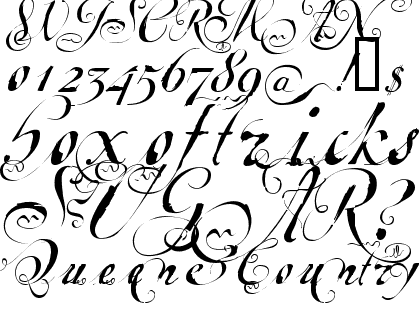 WISCRMAN
0123456789@!$
box of tricks
SUGAR?
Queene Country